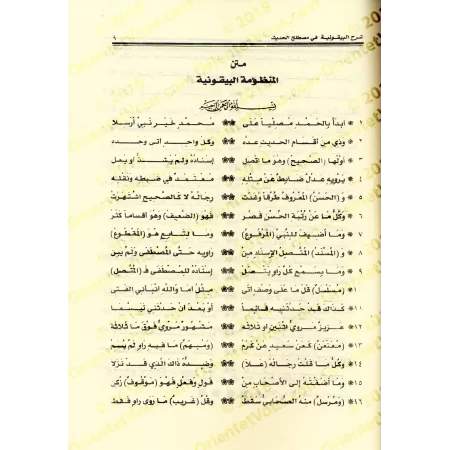 شرح البيقونية في مصطلح الحديث
متن
المنظومة البيقونية
بسم الله الرحمن الرحيم
١ * أبدأ بالحمد مصليا على محمد خير نبي أرسلا
٢ * وذي من أقسام الحديث عده وكل واحد أتى وحده
٣ * أولها (الصحيح) وهو ما اتصل إسناده ولم يشذ أو يعل
٤ * يرويه عدل ضابط عن مثله معتمد في ضبطه ونقله
٥ * و (الحسن) المعروف طرقا وغدت رجاله لا كالصحيح اشتهرت
٦ * وكل ما عن رتبة الحسن قصر فهو (الضعيف) وهو أقساما كثر
٧ * وما أضيف للنبي (المرفوع) وما لتابع هو (المقطوع)
٨ * و (المسند) المتصل الإسناد من راويه حتى المصطفى ولم يبن
٩ * وما بسمع كل راو يتصل إسناده للمصطفى فـ (المتصل)
١٠ * (مسلسل) قل ما على وصف أتى مثل أما والله أنباني الفتى
١١ * كذاك قد حدثنيه قائما أو بعد أن حدثني تبسما
١٢ * عزيز مروي اثنين أو ثلاثه مشهور مروي فوق ما ثلاثه
١٣ * (معنعن) كعن سعيد عن كرم (ومبهم) ما فيه راو لم يسم
١٤ * وكل ما قلت رجاله (علا) وضده ذاك الذي قد نزلا
١٥ * وما أضفته إلى الأصحاب من قول وفعل فهو (موقوف) زكن
١٦ * (ومرسل) منه الصحابي سقط وقل (غريب) ما روى راو فقط